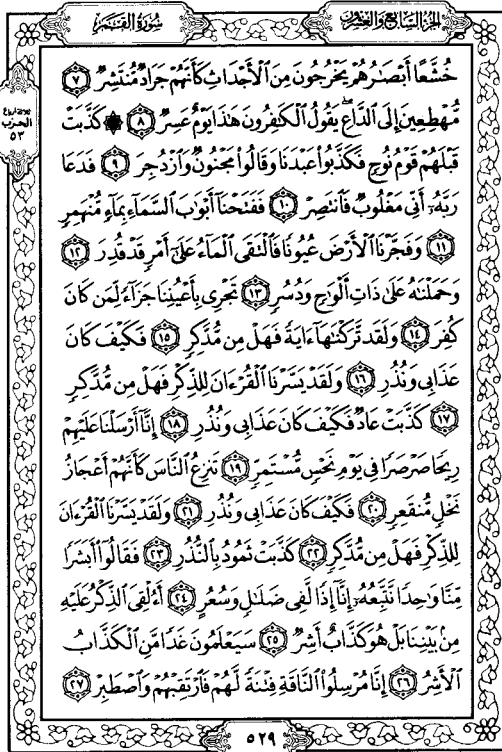 الجزء السابع والعشرون
سورة القمر
خُشَّعًا أَبْصَٰرُهُمْ يَخْرُجُونَ مِنَ ٱلْأَجْدَاثِ كَأَنَّهُمْ جَرَادٌ مُّنتَشِرٌ ٧
مُّهْطِعِينَ إِلَى ٱلدَّاعِ يَقُولُ ٱلْكَٰفِرُونَ هَٰذَا يَوْمٌ عَسِرٌ ٨ ۞ كَذَّبَتْ
قَبْلَهُمْ قَوْمُ نُوحٍ فَكَذَّبُوا۟ عَبْدَنَا وَقَالُوا۟ مَجْنُونٌ وَٱزْدُجِرَ ٩ فَدَعَا
رَبَّهُۥٓ أَنِّى مَغْلُوبٌ فَٱنتَصِرْ ١٠ فَفَتَحْنَآ أَبْوَٰبَ ٱلسَّمَآءِ بِمَآءٍ مُّنْهَمِرٍ
١١ وَفَجَّرْنَا ٱلْأَرْضَ عُيُونًا فَٱلْتَقَى ٱلْمَآءُ عَلَىٰٓ أَمْرٍ قَدْ قُدِرَ ١٢
وَحَمَلْنَٰهُ عَلَىٰ ذَاتِ أَلْوَٰحٍ وَدُسُرٍ ١٣ تَجْرِى بِأَعْيُنِنَا جَزَآءً لِّمَن كَانَ
كُفِرَ ١٤ وَلَقَد تَّرَكْنَٰهَآ ءَايَةً فَهَلْ مِن مُّدَّكِرٍ ١٥ فَكَيْفَ كَانَ
عَذَابِى وَنُذُرِ ١٦ وَلَقَدْ يَسَّرْنَا ٱلْقُرْءَانَ لِلذِّكْرِ فَهَلْ مِن مُّدَّكِرٍ
١٧ كَذَّبَتْ عَادٌ فَكَيْفَ كَانَ عَذَابِى وَنُذُرِ ١٨ إِنَّآ أَرْسَلْنَا عَلَيْهِمْ
رِيحًا صَرْصَرًا فِى يَوْمِ نَحْسٍ مُّسْتَمِرٍّ ١٩ تَنزِعُ ٱلنَّاسَ كَأَنَّهُمْ أَعْجَازُ
نَخْلٍ مُّنقَعِرٍ ٢٠ فَكَيْفَ كَانَ عَذَابِى وَنُذُرِ ٢١ وَلَقَدْ يَسَّرْنَا ٱلْقُرْءَانَ
لِلذِّكْرِ فَهَلْ مِن مُّدَّكِرٍ ٢٢ كَذَّبَتْ ثَمُودُ بِٱلنُّذُرِ ٢٣ فَقَالُوٓا۟ أَبَشَرًا
مِّنَّا وَٰحِدًا نَّتَّبِعُهُۥٓ إِنَّآ إِذًا لَّفِى ضَلَٰلٍ وَسُعُرٍ ٢٤ أَءُلْقِىَ ٱلذِّكْرُ عَلَيْهِ
مِنۢ بَيْنِنَا بَلْ هُوَ كَذَّابٌ أَشِرٌ ٢٥ سَيَعْلَمُونَ غَدًا مَّنِ ٱلْكَذَّابُ
ٱلْأَشِرُ ٢٦ إِنَّا مُرْسِلُوا۟ ٱلنَّاقَةِ فِتْنَةً لَّهُمْ فَٱرْتَقِبْهُمْ وَٱصْطَبِرْ ٢٧
الحزب
٥٣
٥٢٩